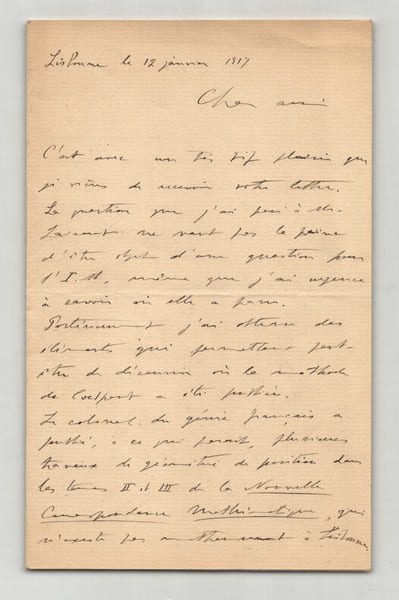 Lisbonne le 12 janvier 1917
Cher ami
C'est avec un très vif plaisir que
je viens de recevoir votre lettre.
La question que j'ai posé à Mr.
ne vaut pas la peine
d'être objet d'une question pour
l'I. M, même que j'ai urgence
à savoir où elle a paru.
j'ai obtenu des
éléments qui permettent peut-
être de découvrir où la méthode
de Coclpert a été publiée.
Le colonel du génie français a
publié, à ce qui parait, plusieurs
travaux de géométrie de position dans
les tomes II et III de la Nouvelle
Correspondance Mathématique, qui
n'existe pas à Lisbonne.